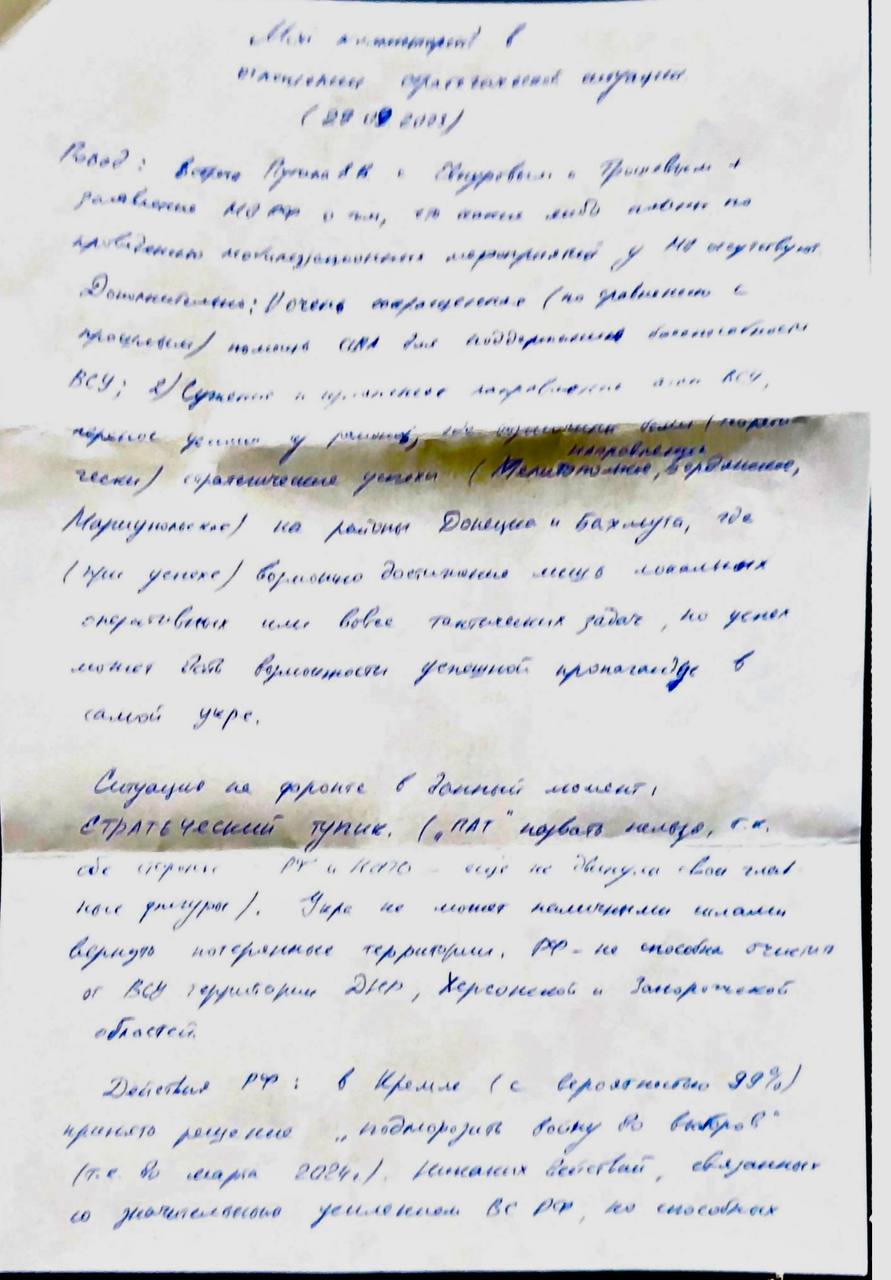 Мой комментарий в
отношении стратегической ситуации
(29.09.2023)
Повод: встреча Путина В В с Евкуровым и Трошевым и
заявление МО РФ о том, что какие либо планы по
проведению мобилизационных мероприятий у МО отсутствуют.
Дополнительно: 1) очень сокращенная (по сравнению с
прошлым) помощь США для поддержания боеспособности
ВСУ; 2) Сужение и направление атак ВСУ,
перенос усилий из районов, где возможны были (теорети-
чески) стратегические успехи (Мелитопольское, Бердянское, направления
Мариупольское) на районы Донецка и Бахмута, где
(при успехе) возможно достижение лишь локальных
оперативных или вовсе тактических задач, но успех
может дать возможности успешной пропаганде в
самой укре.
Ситуация на фронте в данный момент:
СТРАТЕГИЧЕСКИЙ тупик. („ПАТ" назвать нельзя, т.к.
обе стороны РФ и НАТО - еще не двинули свои глав
ные фигуры). Укра не может наличными силами
вернуть потерянные территории. РФ - не способна очистить
от ВСУ территории ДНР, Херсонской и Запорожской
областей.
Действия РФ: в Кремле (с вероятностью 99%)
принято решение „подморозить войну до выборов"
(т.е. до марта 2024г.). Никаких действий, связанных
со значительным усилением ВС РФ, но способных